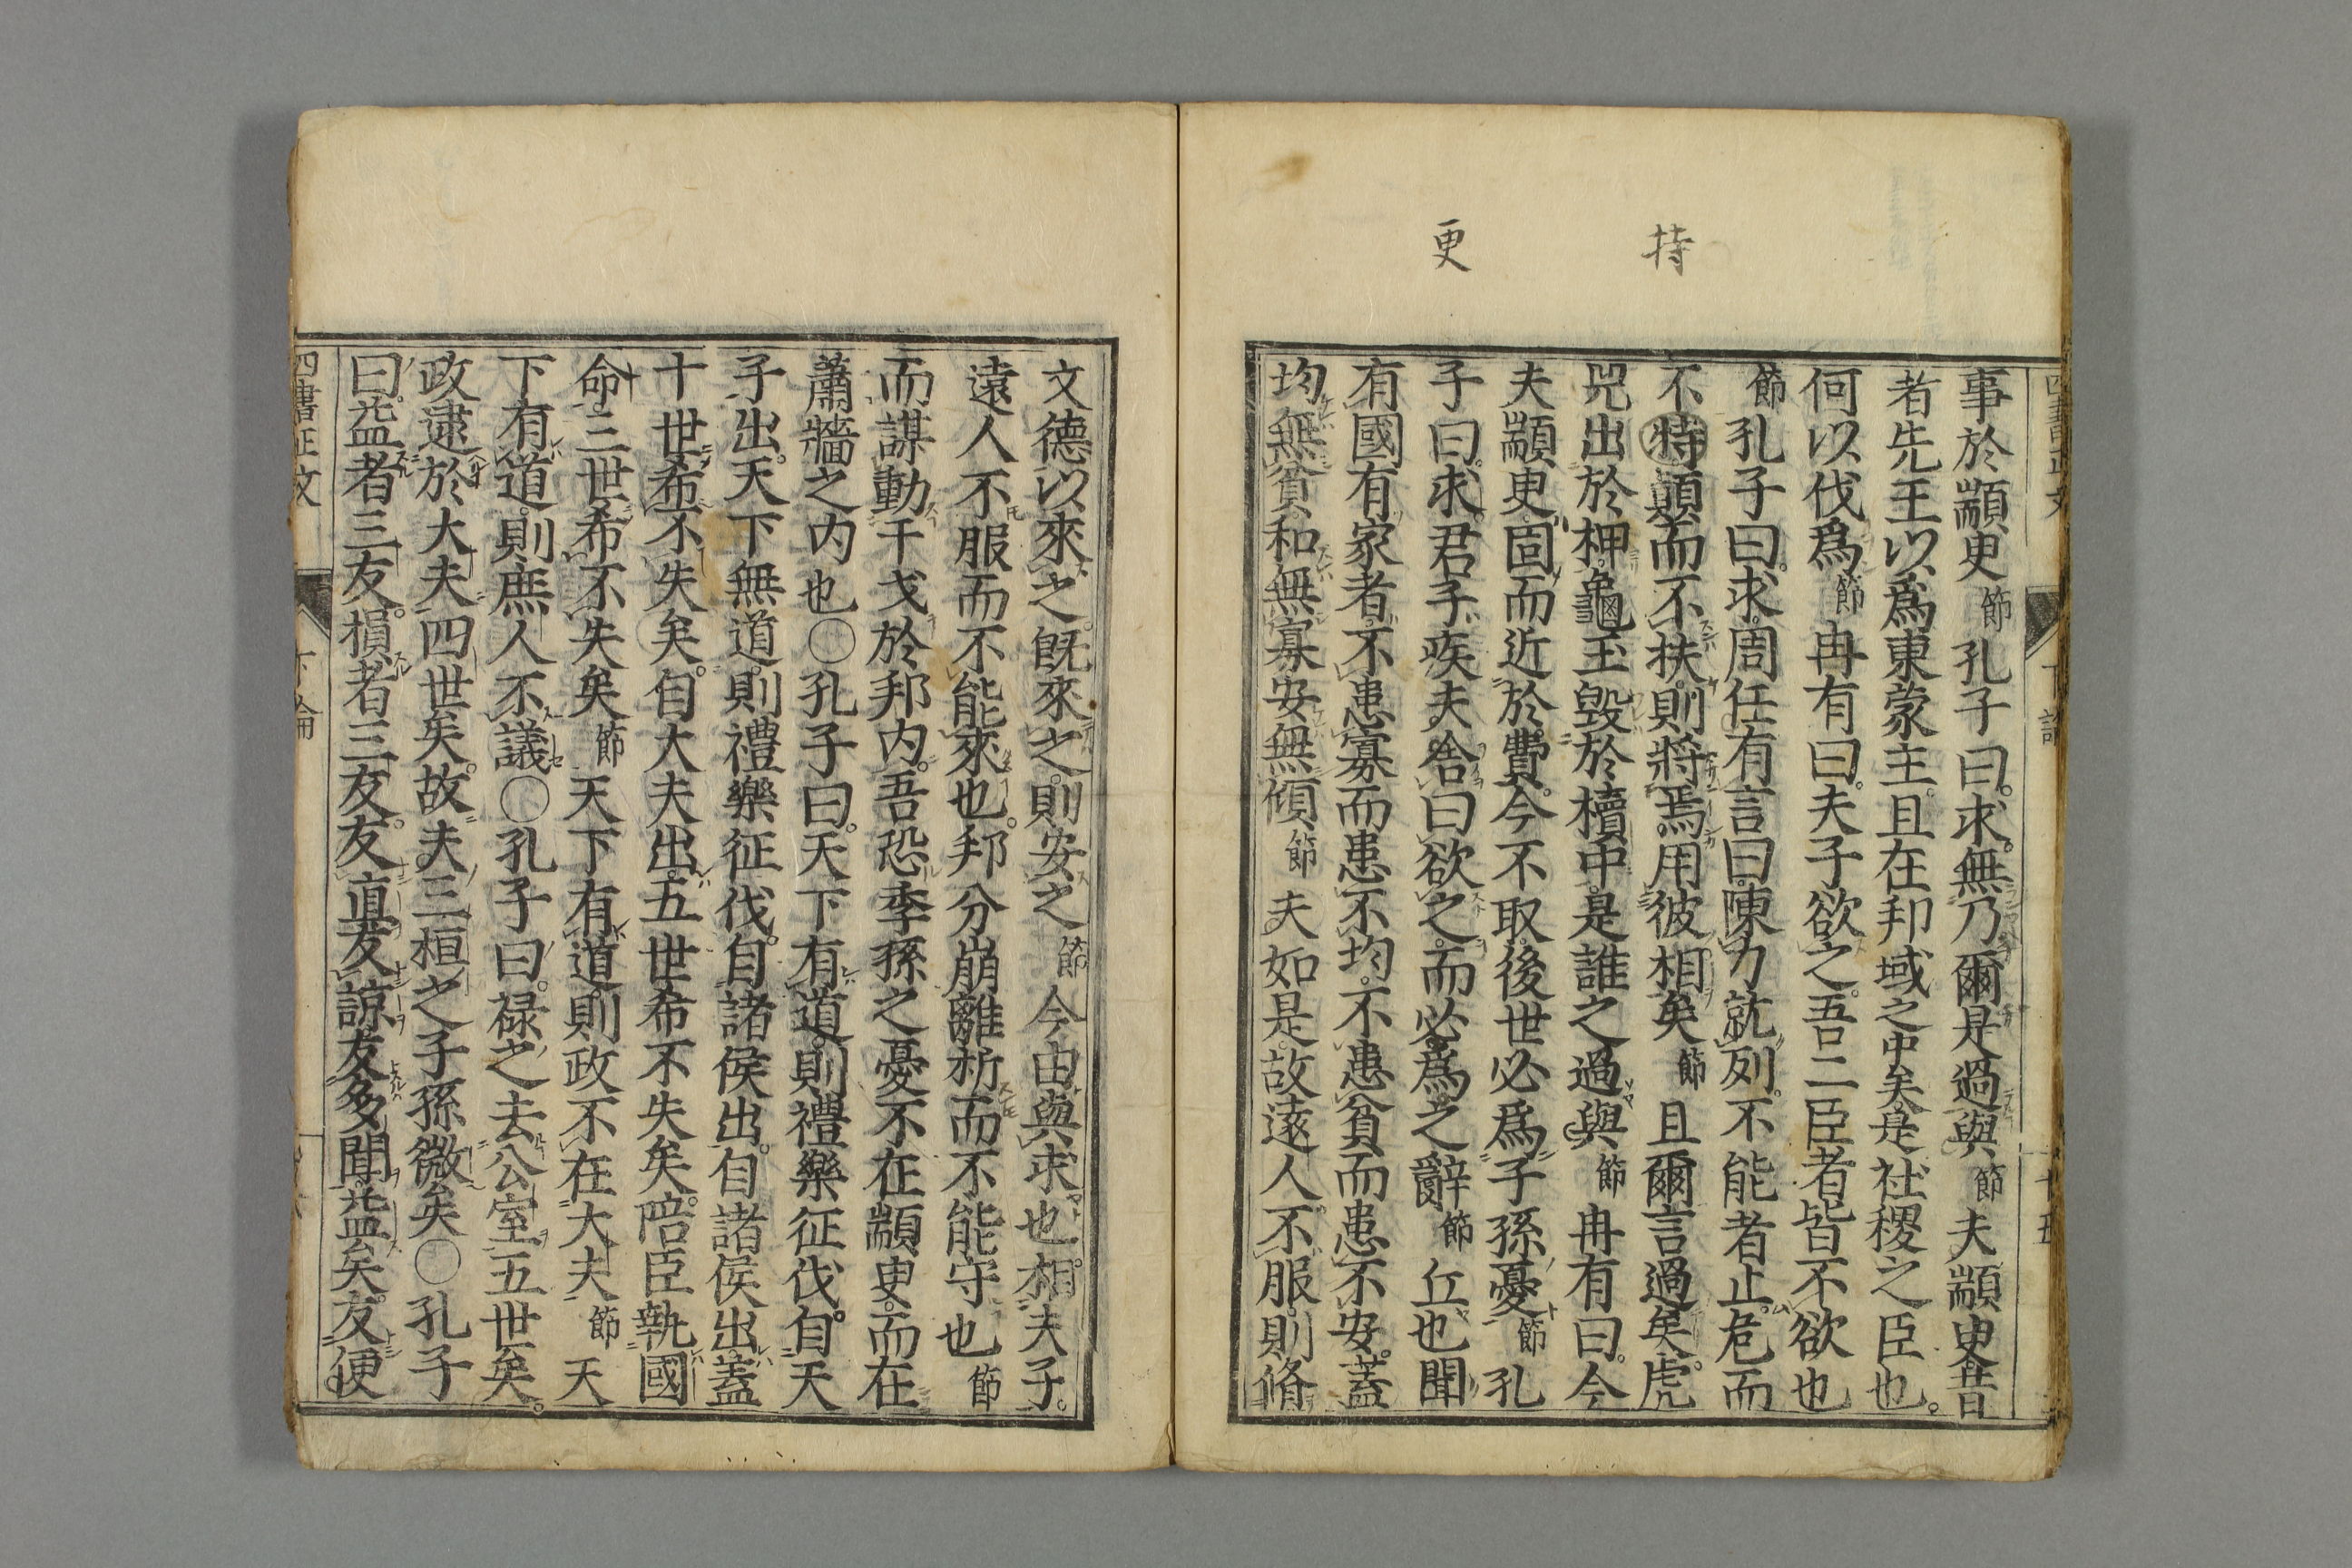 持
更
事於顓臾節孔子曰。求。無乃爾是過與節夫顓臾昔
者先王以爲東蒙主。且在邦域之中矣是社稷之臣也。
何以伐爲節冉有曰。夫子欲之。吾二臣者皆不欲也
節孔子曰。求。周任有言曰。陳力就列。不能者止。危而
不持顛而不扶。則將焉用彼相矣節且爾言過矣。虎
兕出於柙。龜玉毀於櫝中。是誰之過與節冉有曰。今
夫顓臾。固而近於費。今不取。後世必爲子孫憂節孔
子曰。求。君子疾夫舍曰欲之。而必爲之辭節丘也聞
有國有家者。不患寡而患不均。不患貧而患不安。蓋
均無貧。和無寡。安無傾節夫如是。故遠人不服。則脩
文德以來之。既來之。則安之節今由與求也。相夫子。
遠人不服而不能來也。邦分崩離析而不能守也節
而謀動干戈於邦内。吾恐季孫之憂不在顓臾。而在
蕭牆之内也〇孔子曰。天下有道。則禮樂征伐。自天
子出。天下無道。則禮樂征伐。自諸侯出。自諸侯出。蓋
十世希不失矣。自大夫出。五世希不失矣。陪臣執國
命。三世希不失矣節天下有道。則政不在大夫節天
下有道。則庶人不議〇孔子曰。禄之去公室五世矣。
政逮於大夫四世矣。故夫三桓之子孫微矣〇孔子
曰。益者三友。損者三友。友直友諒友多聞。益矣。友便
四書正文 下論